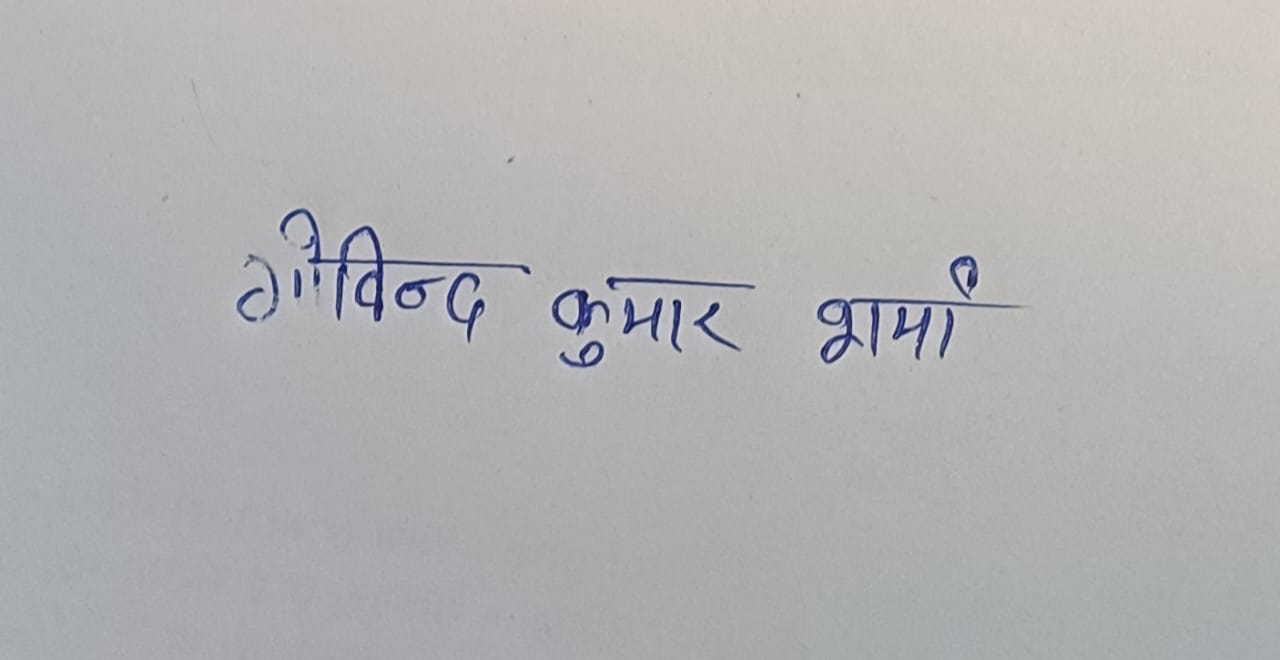 गोविन्द कुमार शर्मा